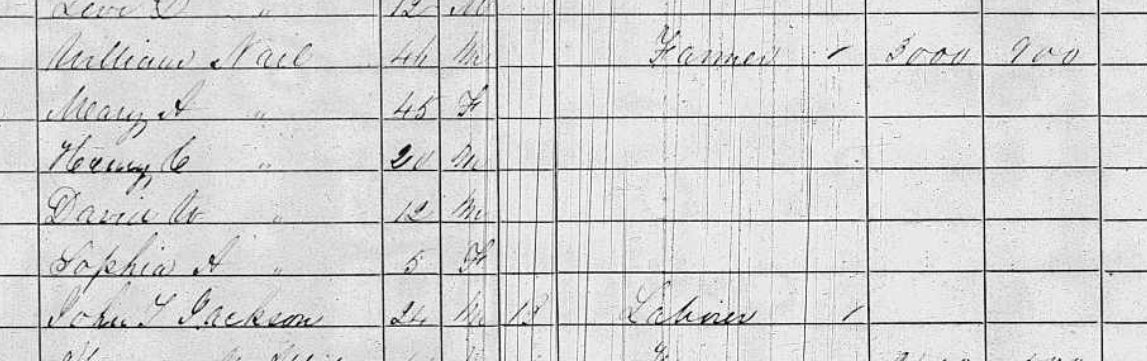 Levi D " 12 M
William Nail 46 M Farmer 3000 900
Mary A " 45 F
Henry C " 20 M
David W " 12 M
Sophia A " 5 F
John T Jackson 24 M B Laborer